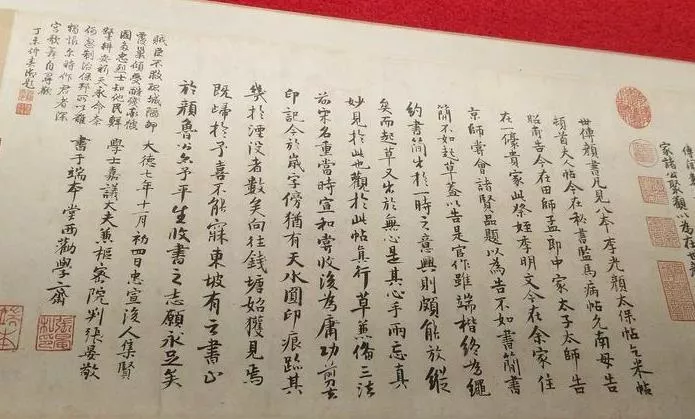 家諸公聚類以為在世
世傳顏書凡見八本李光顏太保帖乞米帖
頓首夫人帖今在秘書監馬病帖允南母告
昭甫告今在田師孟郎中家太子太師告
在一僚貴家此祭姪季明文今在余家住
京師嘗會諸賢品題以為告不如書簡書
簡不如起草蓋以告是官作雖端楷終為繩
約書簡出於一時之意興則頗能放縱
矣而起草又出於無心是其心手兩忘真
妙見於此也觀於此帖真行草兼備三法
前宋名重當時宣和嘗收後為庸功剪去
印記今於歲字傍猶有天水圓印痕跡其
幾於湮沒者數矣向往錢塘始獲見焉
既歸於予喜不能寐東坡有云書止
於顏魯公亦予平生收書之志願永足矣
大德七年十一月初四日忠宣後人集賢
學士嘉議大夫兼樞密院判張晏敬
書于端本堂西勸學齋
賊臣不救孤城隔師